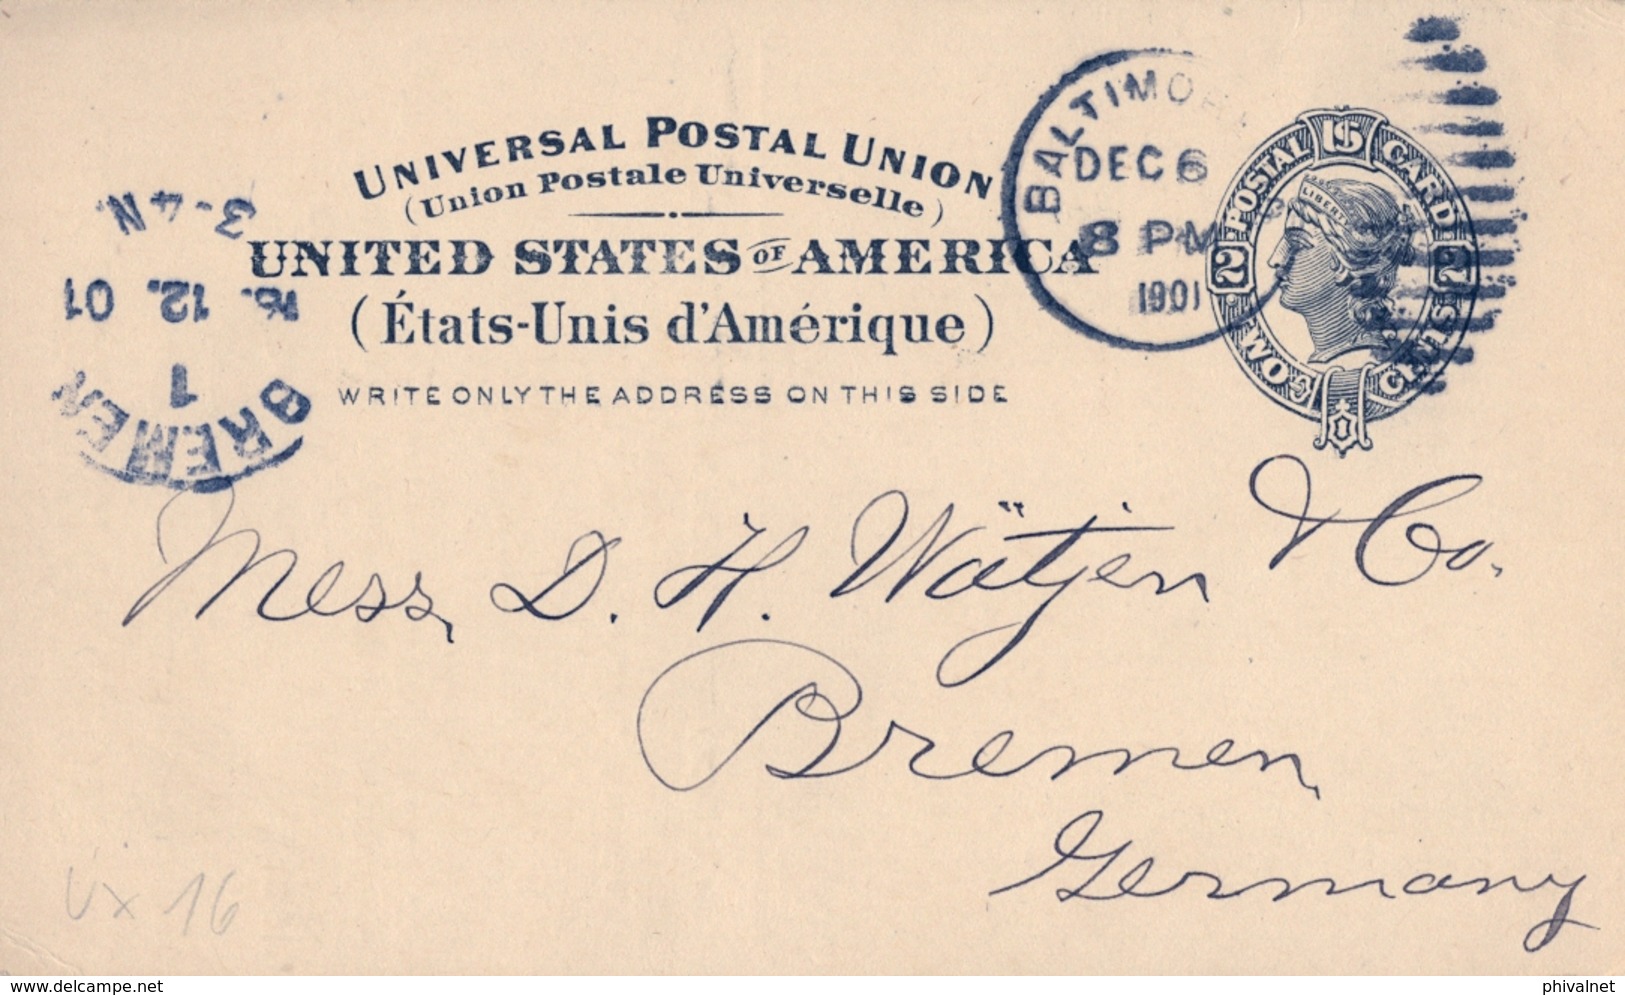 UNIVERSAL POSTAL UNION
(Union Postale Universelle)
UNITED STATES OF AMERICA
(États-Unis d'Amérique)
WRITE ONLY THE ADDRESS ON THIS SIDE
BALTIMO
DEC 6
8 PM
1901
POSTAL 1S CARD
LIBERTY
2 2
TWO CENTS
3-4 N.
12. 01
1
BREMEN
Mess. D. H. Wätjen & Co.
Bremen,
Germany
UX 16
www.delcampe.net
phivalnet